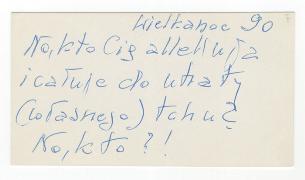 Wielkanoc 90
No, kto Cię alleluja
i całuje do utraty
(własnego) tchu?
No, kto?!